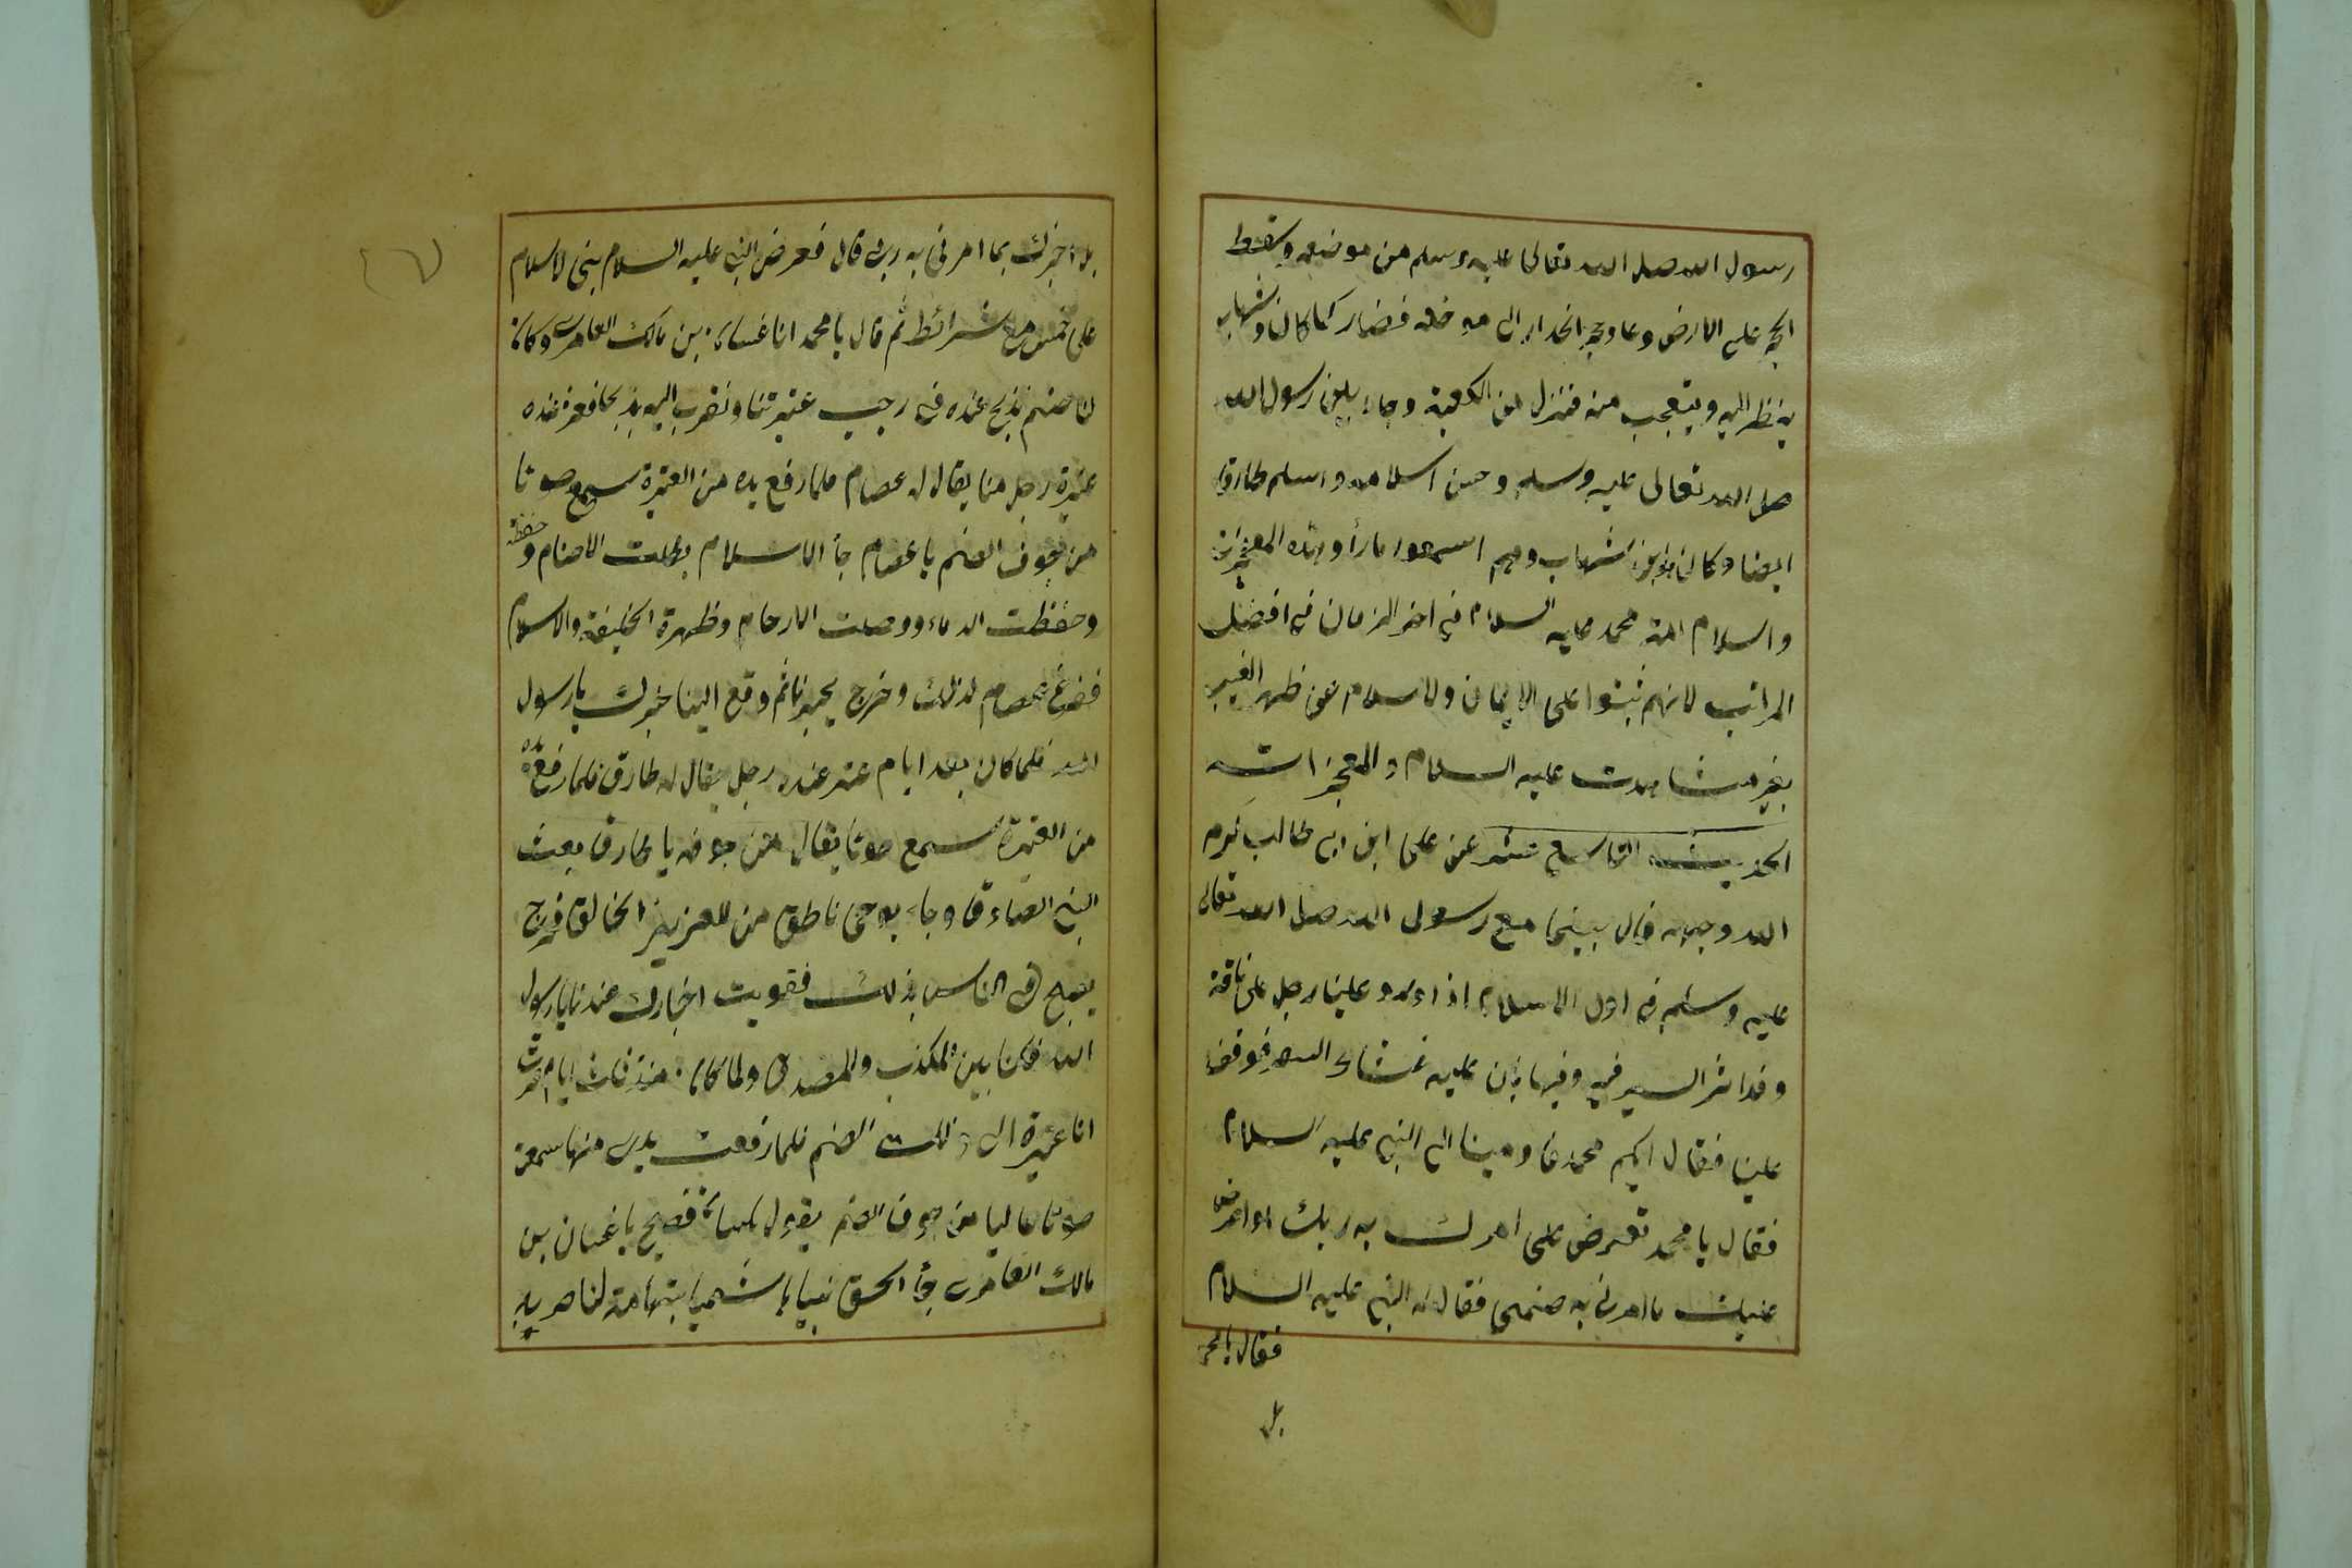 رسول الله صلى الله تعالى عليه وسلم من موضعه وسقط
الحجر على الارض وعاد حجر الجدار الى موضعه فصار كما كان وشهاب
ينظر اليه ويتعجب منه فنزل من الكعبة وجاء بين رسول الله
صلى الله تعالى عليه وسلم وحسن اسلامه واسلم طارق
ايضا وكان شهاب وهم اسلموا رأوا هذه المعجزات
واسلام امة محمد عليه السلام في اخر الزمان في افضل
المراتب لانهم ثبتوا على الايمان والاسلام عن ظهر الغيب
بغير مشاهدت عليه السلام والمعجزات
الحديث التاسع عشر عن على ابن ابى طالب كرم
الله وجهه قال بينما مع رسول الله صلى الله تعالى
عليه وسلم في اول الاسلام اذا ورد علينا رجل على ناقة
وقد اثر السير فيه وفيها بان عليه غشاء السفر فوقف
علينا فقال ايكم محمد فاومينا الى النبي عليه السلام
فقال يا محمد تعرض على امرك به ربك او اعرض
عليك ما امرنى به صنمى فقال له النبي عليه السلام
فقال يا محمد
بل
بل اخبرك بما امرنى به ربى قال فعرض النبي عليه السلام بنى الاسلام
على خمس مع شرائط ثم قال يا محمد انا غسان بن مالك العامرى وكان
لنا صنم نذبح عنده في رجب عتيرتنا ونقرب اليه بذبحنا فعتر عنده
عتيرة رجل منا يقال له عصام فلما رفع يده من العتيرة سمع صوتا
من جوف الصنم يا عصام جاء الاسلام بطلت الاصنام و
وحفظت الدماء ووصلت الارحام وظهرة الحنيفة والاسلام
ففزع عصام لذلك وخرج يخبرنا ثم وقع الينا خبرك يا رسول
الله فلما كان بعد ايام عتر عنده رجل يقال له طارق فلما رفع يده
من العتيرة سمع صوتا يقال من جوفه يا طارق بعث
النبي الصادق وجاء بوحى ناطق من العزيز الخالق فخرج
يصيح في الناس بذلك فقويت اخبارك عندنا يا رسول
الله فكنا بين المكذب والمصدق ولما كان منذ ثلث ايام عترت
انا عتيرة الى ذلك الصنم فلما رفعت يدى منها سمعت
صوتا عاليا من جوف الصنم يقول بلسان فصيح يا غسان بن
مالك العامرى جاء الحق نبيا هاشميا بتهامة لناصريه